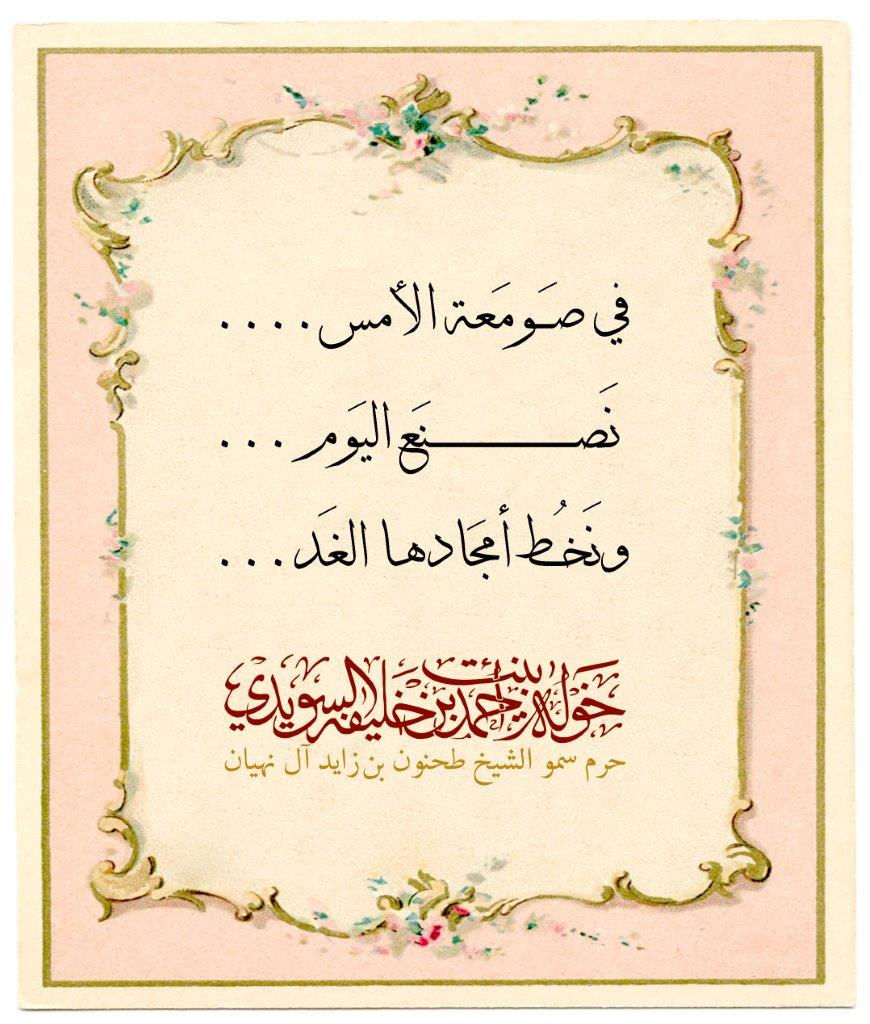 في صَومَعة الأمس....
نَصـــــــنَع اليَوم ...
ونَخُط أمجَادها الغَد...
خَوله بنت أحمد بن خليفه السويدي
حرم سمو الشيخ طحنون بن زايد آل نهيان